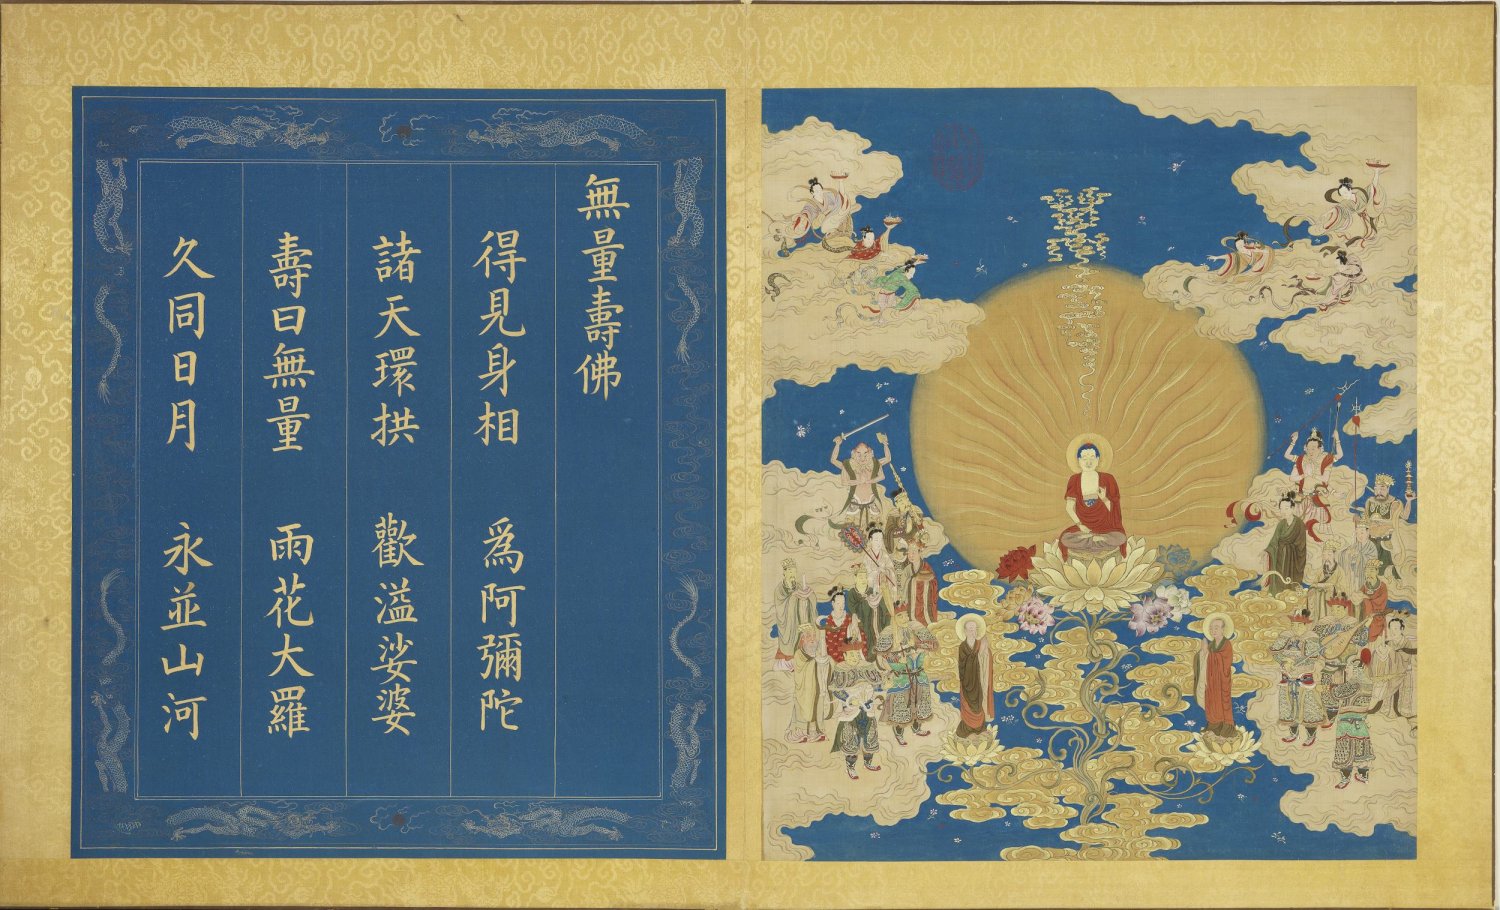 無量壽佛
得見身相　爲阿彌陀
諸天環拱　歡溢娑婆
壽曰無量　雨花大羅
久同日月　永並山河